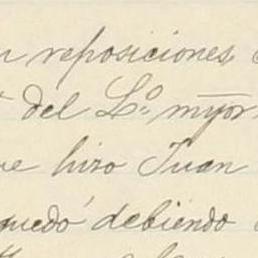 n reposiciones
del L.º myor
ue hizo Juan
quedó debiendo